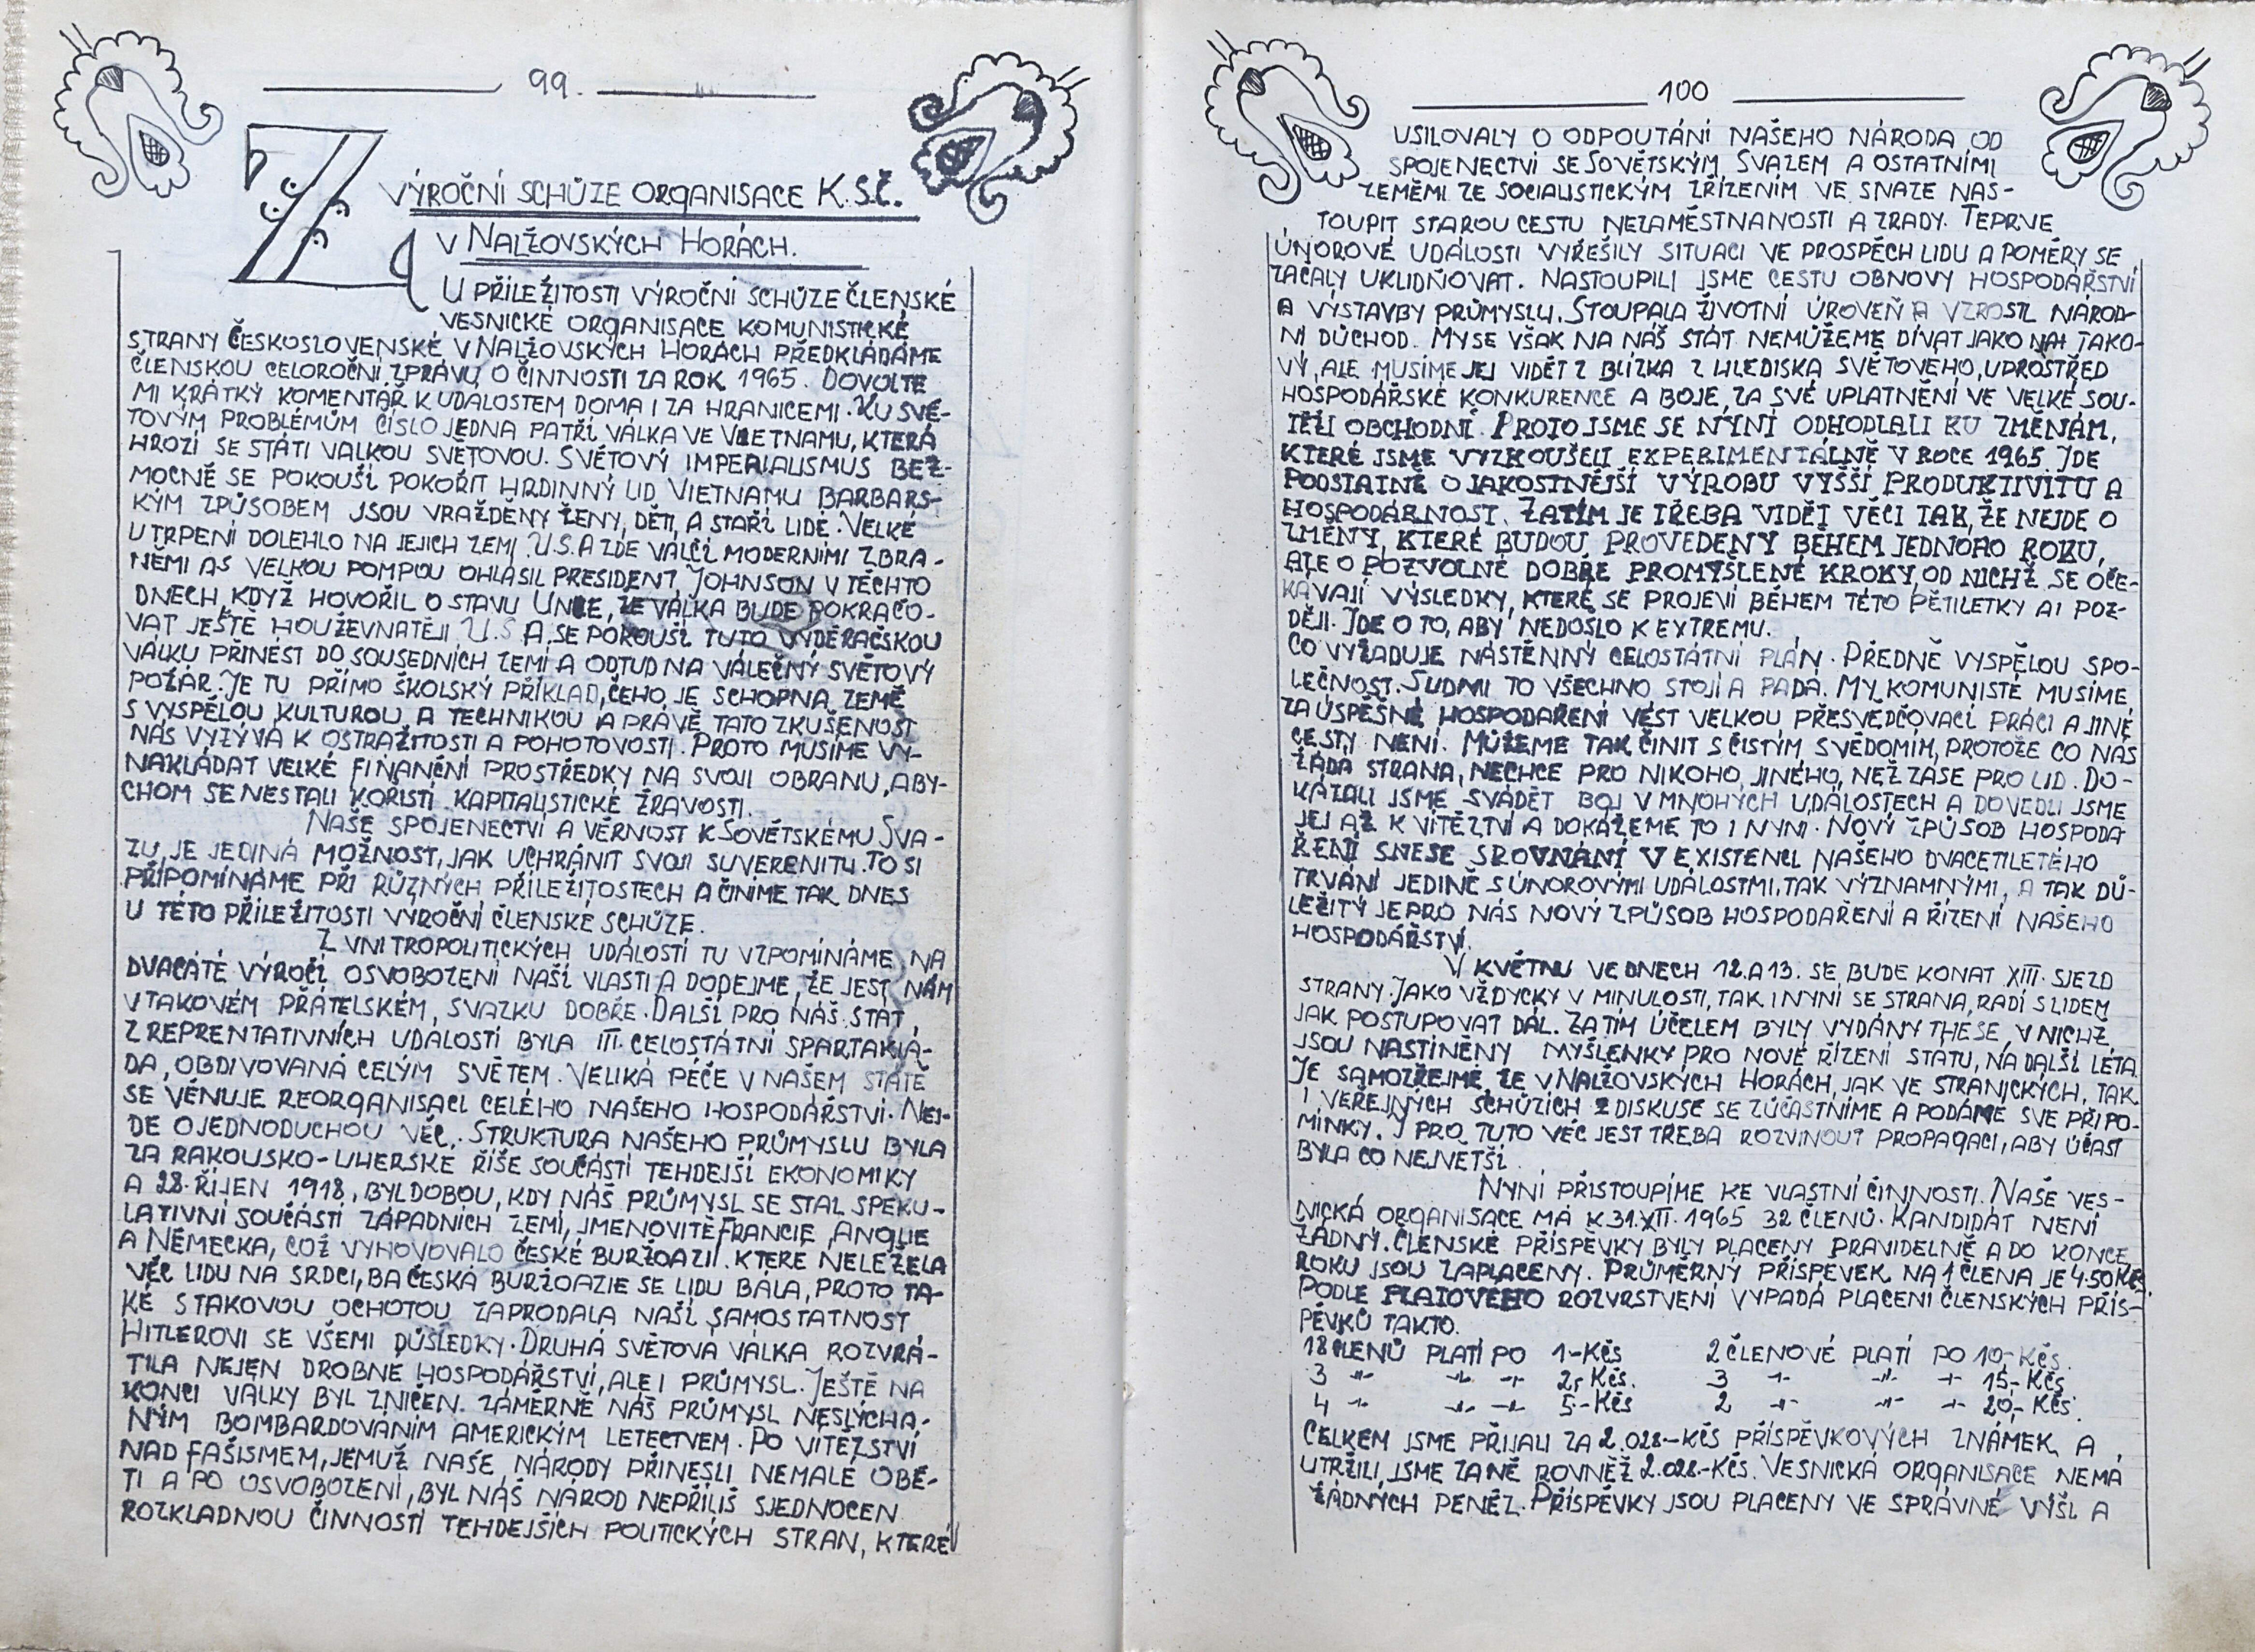 99.
Z
VÝROČNÍ SCHŮZE ORGANISACE K.S.Č.
V NALŽOVSKÝCH HORÁCH.
U PŘÍLEŽITOSTI VÝROČNÍ SCHŮZE ČLENSKÉ
VESNICKÉ ORGANISACE KOMUNISTICKÉ
STRANY ČESKOSLOVENSKÉ V NALŽOVSKÝCH HORÁCH PŘEDKLÁDÁME
ČLENSKOU CELOROČNÍ ZPRÁVU O ČINNOSTI ZA ROK 1965. DOVOLTE
MI KRÁTKÝ KOMENTÁŘ K UDÁLOSTEM DOMA I ZA HRANICEMI. KU SVĚ-
TOVÝM PROBLÉMŮM ČÍSLO JEDNA PATŘÍ VÁLKA VE VIETNAMU, KTERÁ
HROZÍ SE STÁTI VÁLKOU SVĚTOVOU. SVĚTOVÝ IMPERIALISMUS BEZ-
MOCNĚ SE POKOUŠÍ POKOŘIT HRDINNÝ LID VIETNAMU BARBARS-
KÝM ZPŮSOBEM JSOU VRAŽDĚNY ŽENY, DĚTI, A STAŘÍ LIDÉ. VELKÉ
UTRPENÍ DOLEHLO NA JEJICH ZEMI. U.S.A ZDE VÁLČÍ MODERNÍMI ZBRA-
NĚMI A S VELKOU POMPOU OHLÁSIL PRESIDENT JOHNSON V TĚCHTO
DNECH, KDYŽ HOVOŘIL O STAVU UNIE, ŽE VÁLKA BUDE POKRAČO-
VAT JEŠTĚ HOUŽEVNATĚJI U.S A. SE POKOUŠÍ TUTO VYDĚRAČSKOU
VÁLKU PŘINÉST DO SOUSEDNÍCH ZEMÍ A ODTUD NA VÁLEČNÝ SVĚTOVÝ
POŽÁR. JE TU PŘÍMO ŠKOLSKÝ PŘÍKLAD, ČEHO JE SCHOPNA ZEMĚ
S VYSPĚLOU KULTUROU A TECHNIKOU A PRÁVĚ TATO ZKUŠENOST
NÁS VYZÝVÁ K OSTRAŽITOSTI A POHOTOVOSTI. PROTO MUSÍME VY-
NAKLÁDAT VELKÉ FINANČNÍ PROSTŘEDKY NA SVOJI OBRANU, ABY-
CHOM SE NESTALI KOŘISTÍ KAPITALISTICKÉ ŽRAVOSTI.
NAŠE SPOJENECTVÍ A VĚRNOST K SOVĚTSKÉMU SVA-
ZU, JE JEDINÁ MOŽNOST, JAK UCHRÁNIT SVOJI SUVERENITU. TO SI
PŘIPOMÍNÁME PŘI RŮZNÝCH PŘÍLEŽITOSTECH A ČINÍME TAK DNES
U TÉTO PŘÍLEŽITOSTI VÝROČNÍ ČLENSKÉ SCHŮZE.
Z VNITROPOLITICKÝCH UDÁLOSTÍ TU VZPOMÍNÁME NA
DVACÁTÉ VÝROČÍ OSVOBOZENÍ NAŠÍ VLASTI A DODEJME, ŽE JEST NÁM
V TAKOVÉM PŘÁTELSKÉM, SVAZKU DOBŘE. DALŠÍ PRO NÁŠ STÁT
Z REPRENTATIVNÍCH UDÁLOSTÍ BYLA III. CELOSTÁTNÍ SPARTAKIÁ-
DA, OBDIVOVANÁ CELÝM SVĚTEM. VELIKÁ PÉČE V NAŠEM STÁTĚ
SE VĚNUJE REORGANISACI CELÉHO NAŠEHO HOSPODÁŘSTVÍ. NEJ-
DE O JEDNODUCHOU VĚC. STRUKTURA NAŠEHO PRŮMYSLU BYLA
ZA RAKOUSKO-UHERSKÉ ŘÍŠE SOUČÁSTÍ TEHDEJŠÍ EKONOMIKY
A 28. ŘÍJEN 1918, BYL DOBOU, KDY NÁŠ PRŮMYSL SE STAL SPEKU-
LATIVNÍ SOUČÁSTÍ ZÁPADNÍCH ZEMÍ, JMENOVITĚ FRANCIE, ANGLIE
A NĚMECKA, COŽ VYHOVOVALO ČESKÉ BURŽOAZII. KTERÉ NELEŽELA
VĚC LIDU NA SRDCI, BA ČESKÁ BURŽOAZIE SE LIDU BÁLA, PROTO TA-
KÉ S TAKOVOU OCHOTOU ZAPRODALA NAŠÍ SAMOSTATNOST
HITLEROVI SE VŠEMI DŮSLEDKY. DRUHÁ SVĚTOVÁ VÁLKA ROZVRÁ-
TILA NEJEN DROBNÉ HOSPODÁŘSTVÍ, ALE I PRŮMYSL. JEŠTĚ NA
KONCI VÁLKY BYL ZNIČEN. ZÁMĚRNĚ NÁŠ PRŮMYSL NESLÝCHA-
NÝM BOMBARDOVÁNÍM AMERICKÝM LETECTVEM. PO VÍTĚZSTVÍ
NAD FAŠISMEM, JEMUŽ NAŠE NÁRODY PŘINESLI NEMALÉ OBĚ-
TI A PO OSVOBOZENÍ, BYL NÁŠ NÁROD NEPŘÍLIŠ SJEDNOCEN
ROZKLADNOU ČINNOSTÍ TEHDEJŠÍCH POLITICKÝCH STRAN, KTERÉ
100
USILOVALY O ODPOUTÁNÍ NAŠEHO NÁRODA OD
SPOJENECTVÍ SE SOVĚTSKÝM SVAZEM A OSTATNÍMI
ZEMĚMI ZE SOCIALISTICKÝM ZŘÍZENÍM VE SNAZE NAS-
TOUPIT STAROU CESTU NEZAMĚSTNANOSTI A ZRADY. TEPRVE
ÚNOROVÉ UDÁLOSTI VYŘEŠILY SITUACI VE PROSPĚCH LIDU A POMĚRY SE
ZAČALY UKLIDŇOVAT. NASTOUPILI JSME CESTU OBNOVY HOSPODÁŘSTVÍ
A VÝSTAVBY PRŮMYSLU. STOUPALA ŽIVOTNÍ ÚROVEŇ A VZROSTL NÁROD-
NÍ DŮCHOD. MY SE VŠAK NA NÁŠ STÁT NEMŮŽEME DÍVAT JAKO NA TAKO-
VÝ, ALE MUSÍME JEJ VIDĚT Z BLÍZKA Z HLEDISKA SVĚTOVÉHO, UPROSTŘED
HOSPODÁŘSKÉ KONKURENCE A BOJE, ZA SVÉ UPLATNĚNÍ VE VELKÉ SOU-
TĚŽI OBCHODNÍ. PROTO JSME SE NYNÍ ODHODLALI KU ZMĚNÁM,
KTERÉ JSME VYZKOUŠELI EXPERIMENTÁLNĚ V ROCE 1965. JDE
PODSTATNĚ O JAKOSTNĚJŠÍ VÝROBU VYŠŠÍ PRODUKTIVITU A
HOSPODÁRNOST. ZATÍM JE TŘEBA VIDĚT VĚCI TAK, ŽE NEJDE O
ZMĚNY, KTERÉ BUDOU PROVEDENY BĚHEM JEDNOHO ROKU,
ALE O POZVOLNÉ DOBŘE PROMYŠLENÉ KROKY, OD NICHŽ SE OČE-
KÁVAJÍ VÝSLEDKY, KTERÉ SE PROJEVÍ BĚHEM TÉTO PĚTILETKY AI POZ-
DĚJI. JDE O TO, ABY NEDOŠLO K EXTREMU.
CO VYŽADUJE NÁSTĚNNÝ CELOSTÁTNÍ PLÁN. PŘEDNĚ VYSPĚLOU SPO-
LEČNOST. S LIDMI TO VŠECHNO STOJÍ A PADÁ. MY, KOMUNISTÉ MUSÍME
ZA ÚSPĚŠNÉ HOSPODAŘENÍ VÉST VELKOU PŘESVĚDČOVACÍ PRÁCI A JINÉ
CESTY NENÍ. MŮŽEME TAK ČINIT S ČISTÝM SVĚDOMÍM, PROTOŽE CO NÁS
ŽÁDÁ STRANA, NECHCE PRO NIKOHO, JINÉHO, NEŽ ZASE PRO LID. DO-
KÁZALI JSME SVÁDĚT BOJ V MNOHÝCH UDÁLOSTECH A DOVEDLI JSME
JEJ AŽ K VÍTĚZTVÍ A DOKÁŽEME TO I NYNÍ. NOVÝ ZPŮSOB HOSPODA
ŘENÍ SNESE SROVNÁNÍ V EXISTENCI NAŠEHO DVACETILETÉHO
TRVÁNÍ JEDINĚ S ÚNOROVÝMI UDÁLOSTMI, TAK VÝZNAMNÝMI, A TAK DŮ-
LEŽITÝ JE PRO NÁS NOVÝ ZPŮSOB HOSPODAŘENÍ A ŘÍZENÍ NAŠEHO
HOSPODÁŘSTVÍ.
V KVĚTNU VE DNECH 12. A 13. SE BUDE KONAT XIII. SJEZD
STRANY. JAKO VŽDYCKY V MINULOSTI, TAK I NYNÍ SE STRANA, RADÍ S LIDEM
JAK POSTUPOVAT DÁL. ZA TÍM ÚČELEM BYLY VYDÁNY THESE, V NICHŽ
JSOU NASTÍNĚNY MYŠLENKY PRO NOVÉ ŘÍZENÍ STÁTU, NA DALŠÍ LÉTA.
JE SAMOZŘEJMÉ, ŽE V NALŽOVSKÝCH HORÁCH, JAK VE STRANICKÝCH, TAK
I VEŘEJNÝCH SCHŮZÍCH Z DISKUSE SE ZÚČASTNÍME A PODÁME SVÉ PŘIPO-
MÍNKY. I PRO TUTO VĚC JEST TŘEBA ROZVINOUT PROPAGACI, ABY ÚČAST
BYLA CO NEJVĚTŠÍ.
NYNÍ PŘISTOUPÍME KE VLASTNÍ ČINNOSTI. NAŠE VES-
NICKÁ ORGANISACE MÁ K 31. XII. 1965 32 ČLENŮ. KANDIDÁT NENÍ
ŽÁDNÝ. ČLENSKÉ PŘÍSPĚVKY BYLY PLACENY PRAVIDELNĚ A DO KONCE
ROKU JSOU ZAPLACENY. PRŮMĚRNÝ PŘÍSPĚVEK NA 1 ČLENA JE 4.50 KČS.
PODLE PLATOVÉHO ROZVRSTVENÍ VYPADÁ PLACENÍ ČLENSKÝCH PŘÍS-
PĚVKŮ TAKTO.
18 ČLENŮ PLATÍ PO 1-KČS 2 ČLENOVÉ PLATÍ PO 10,-KČS.
3 -"- -"- -"- 2,- KČS. 3 -"- -"- -"- 15,- KČS
4 -"- -"- -"- 5-KČS 2 -"- -"- -"- 20,- KČS.
CELKEM JSME PŘIJALI ZA 2.028-KČS PŘÍSPĚVKOVÝCH ZNÁMEK A
UTRŽILI JSME ZA NĚ ROVNĚŽ 2.028-KČS. VESNICKÁ ORGANISACE NEMÁ
ŽÁDNÝCH PENĚZ. PŘÍSPĚVKY JSOU PLACENY VE SPRÁVNÉ VÝŠI A